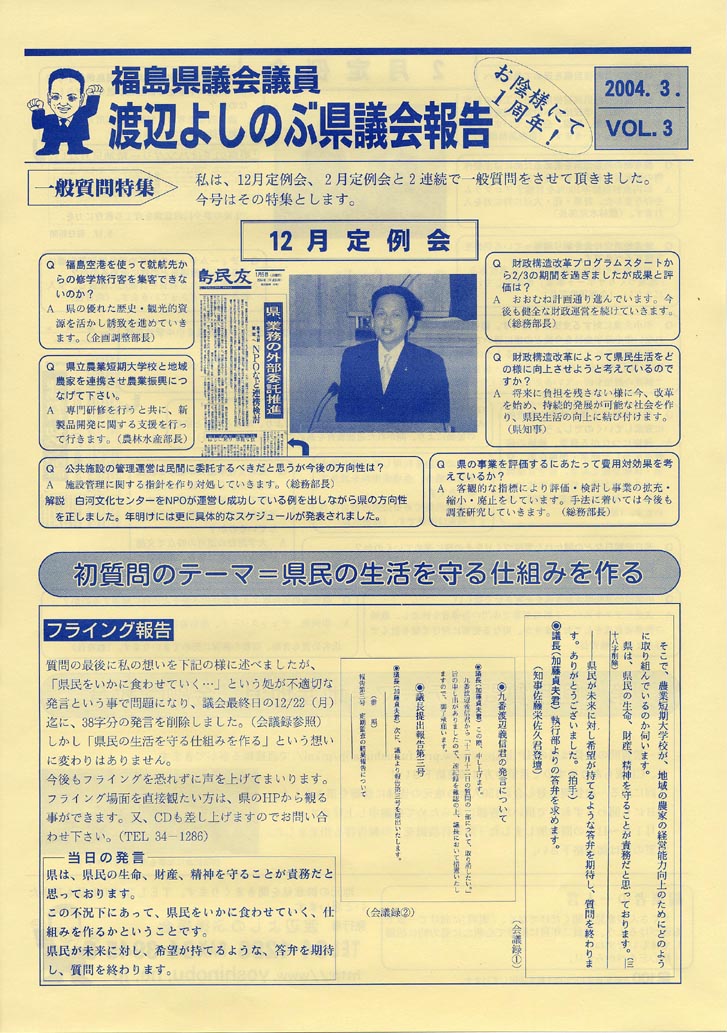 福島県議会議員
渡辺よしのぶ県議会報告
お陰様にて
1周年!
2004. 3.
VOL. 3
一般質問特集
私は、12月定例会、2月定例会と2連続で一般質問をさせて頂きました。
今号はその特集とします。
12月定例会
Q 福島空港を使って就航先か
らの修学旅行客を集客できな
いのか?
A 県の優れた歴史・観光的資
源を活かし誘致を進めていき
ます。(企画調整部長)
Q 県立農業短期大学校と地域
農家を連携させ農業振興につ
なげて下さい。
A 専門研修を行うと共に、新
製品開発に関する支援を行っ
て行きます。(農林水産部長)
島民友
県、業務の外部委託推進
NPOなど連携検討
Q 財政構造改革プログラムスタートか
ら2/3の期間を過ぎましたが成果と評
価は?
A おおむね計画通り進んでいます。今
後も健全な財政運営を続けていきます。
(総務部長)
Q 財政構造改革によって県民生活をど
の様に向上させようと考えているので
すか?
A 将来に負担を残さない様に今、改革
を始め、持続的発展が可能な社会を作
り、県民生活の向上に結び付けます。
(県知事)
Q 公共施設の管理運営は民間に委託するべきだと思うが今後の方向性は?
A 施設管理に関する指針を作り対処していきます。(総務部長)
解説 白河文化センターをNPOが運営し成功している例を出しながら県の方向性
を正しました。年明けには更に具体的なスケジュールが発表されました。
Q 県の事業を評価するにあたって費用対効果を考
えているか?
A 客観的な指標により評価・検討し事業の拡充・
縮小・廃止をしています。手法に着いては今後も
調査研究していきます。(総務部長)
初質問のテーマ=県民の生活を守る仕組みを作る
フライング報告
質問の最後に私の想いを下記の様に述べましたが、
「県民をいかに食わせていく…」という処が不適切な
発言という事で問題になり、議会最終日の12/22(月)
迄に、38字分の発言を削除しました。(会議録参照)
しかし「県民の生活を守る仕組みを作る」という想い
に変わりはありません。
今後もフライングを恐れずに声を上げてまいります。
フライング場面を直接観たい方は、県のHPから観る
事ができます。又、CDも差し上げますのでお問い合
わせ下さい。(TEL 34-1286)
当日の発言
県は、県民の生命、財産、精神を守ることが責務だと
思っております。
この不況下にあって、県民をいかに食わせていく、仕
組みを作るかということです。
県民が未来に対し、希望が持てるような、答弁を期待
し、質問を終わります。
そこで、農業短期大学校が、地域の農家の経営能力向上のためにどのよう
に取り組んでいるのか伺います。
県は、県民の生命、財産、精神を守ることが責務だと思っております。(三
十八字削除)
県民が未来に対し希望が持てるような答弁を期待し、質問を終わりま
す。ありがとうございました。(拍手)
●議長(加藤貞夫君) 執行部よりの答弁を求めます。
(知事佐藤栄佐久君登壇)
(会議録①)
●九番渡辺義信君の発言について
●議長(加藤貞夫君) この際、申し上げます。
九番渡辺義信君から、十二月十二日の質問の一部について、取り消したい
旨の申し出がありましたので、速記録を確認の上、議長において措置いたし
ますので、御了承願います。
●議長提出報告第三号
●議長(加藤貞夫君) 次に、議長より報告第三号を提出いたします。
(参照)
報告第三号 定期監査の結果報告について
(会議録②)